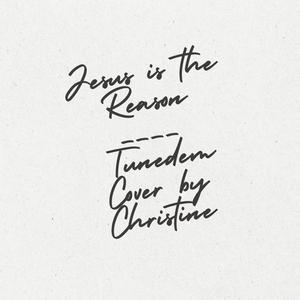 Jesus is the
Reason
----
Tunedem
Cover by
Christine